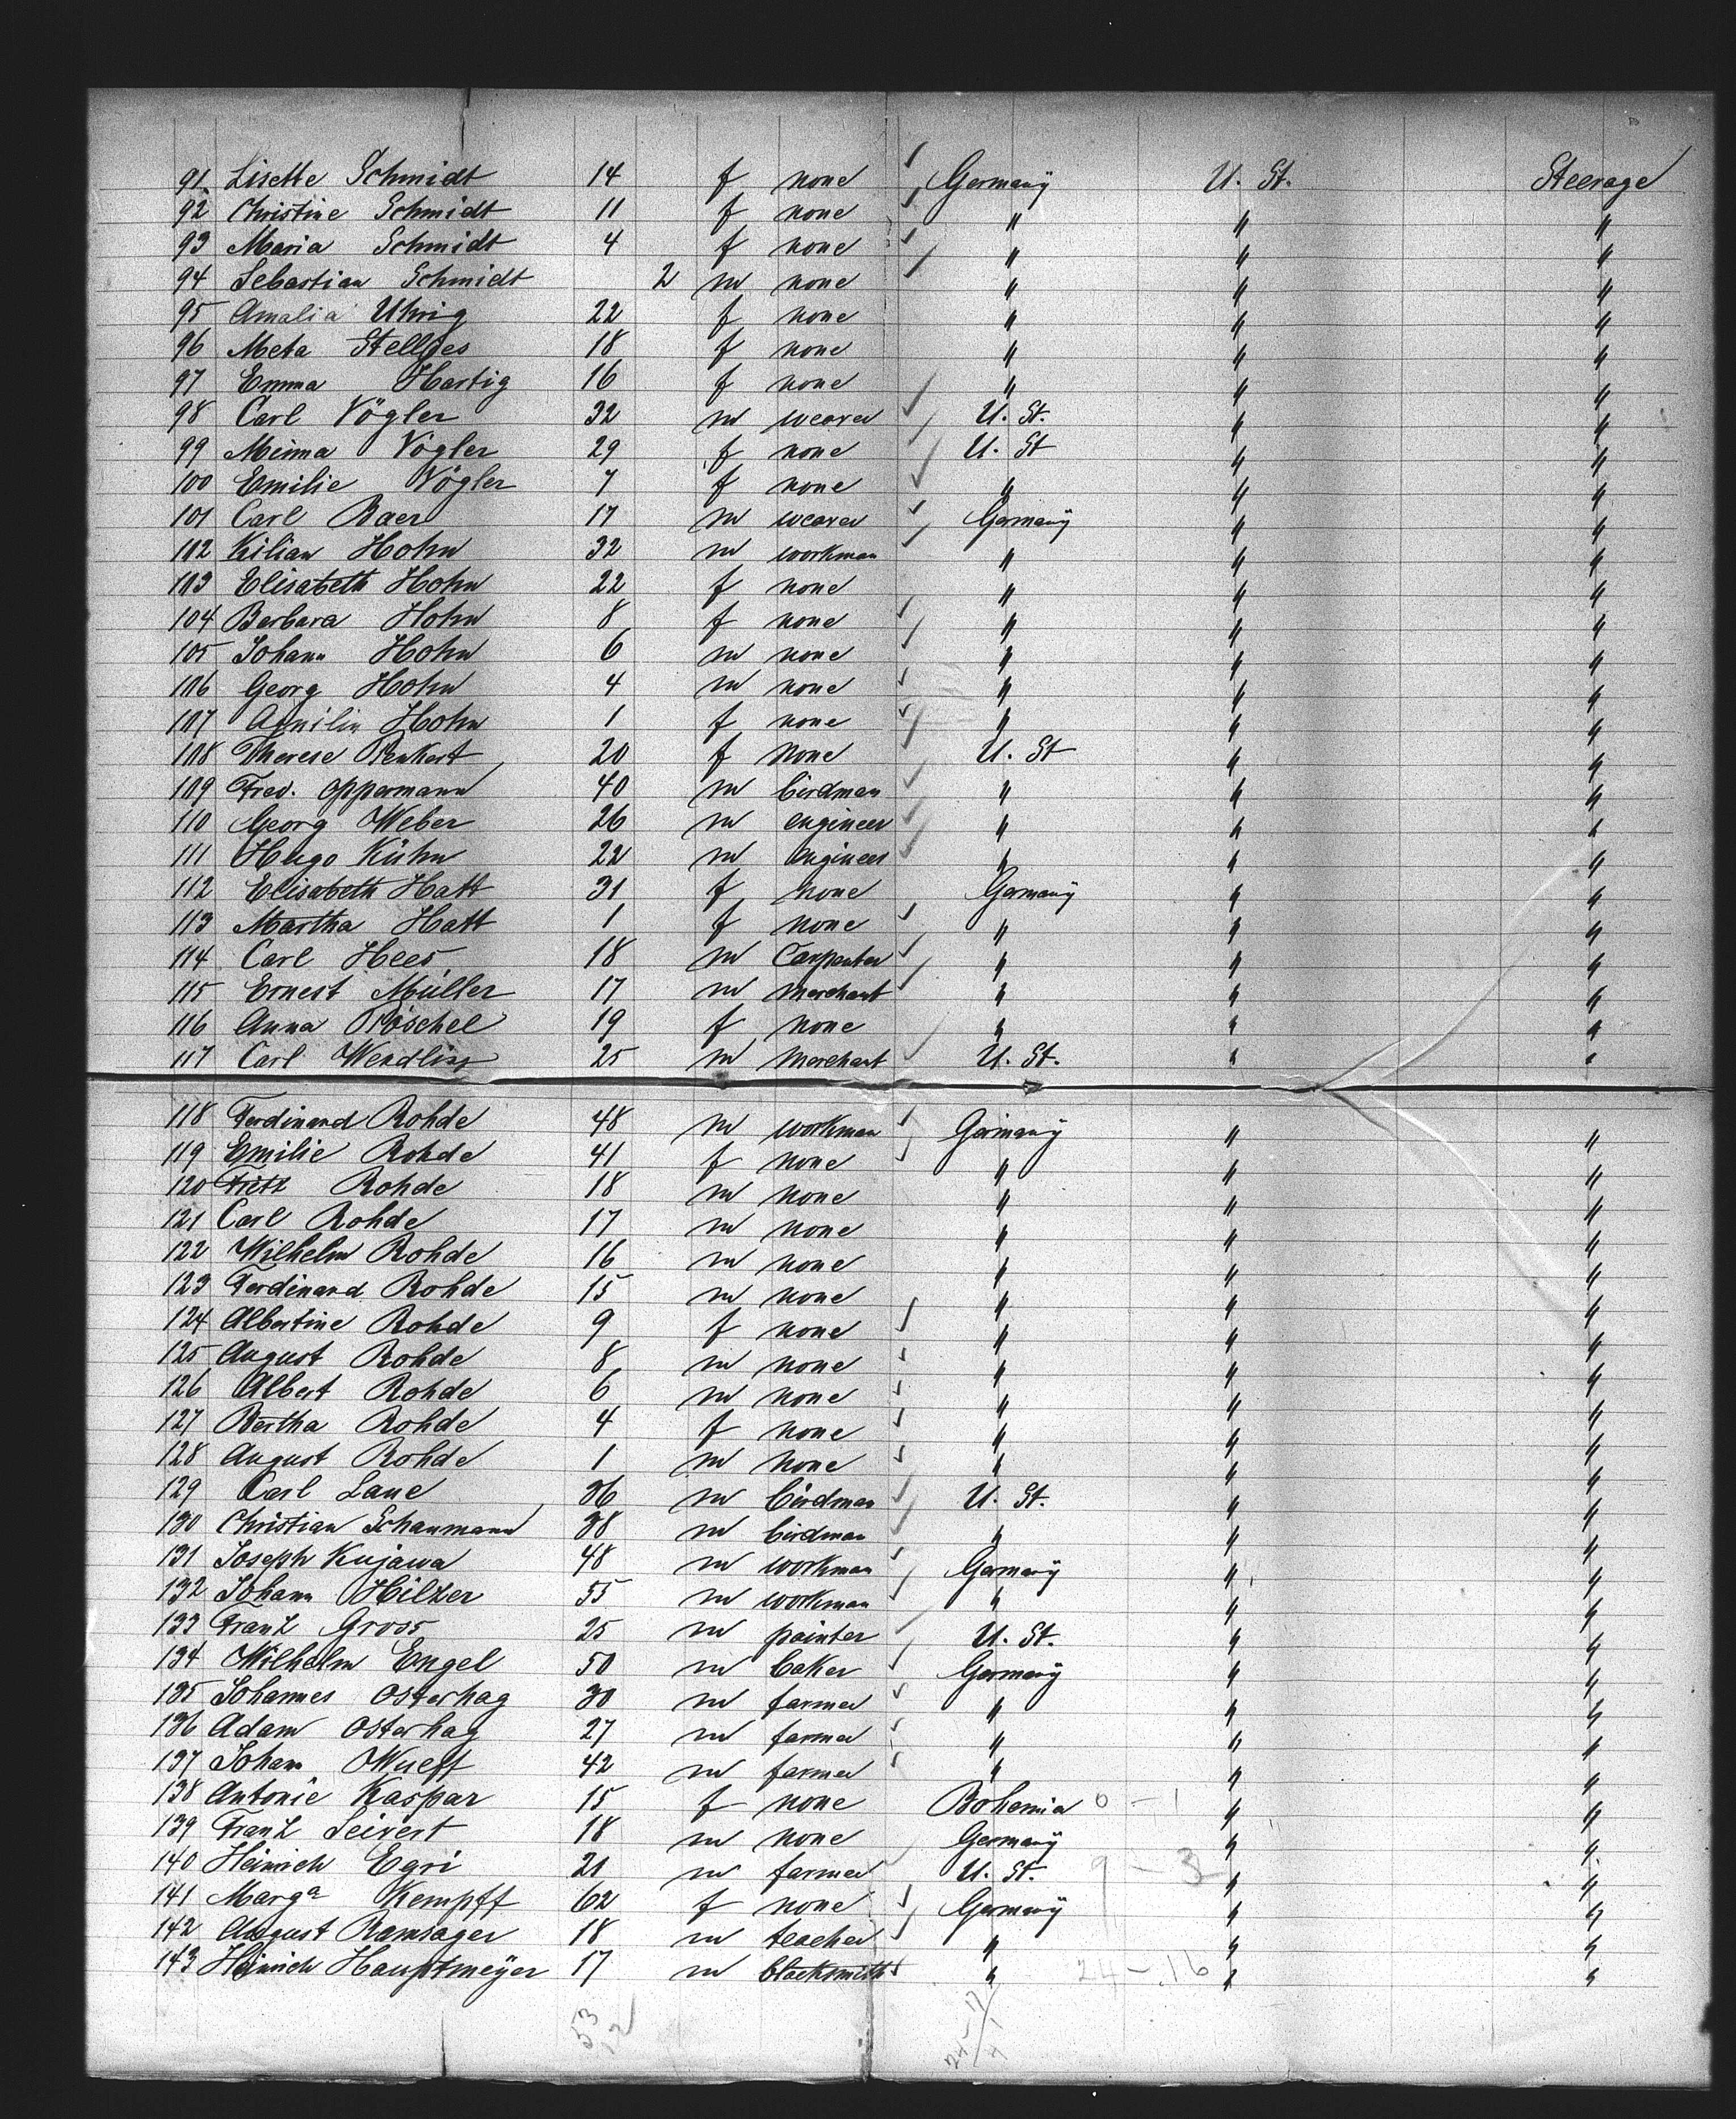 91 Lisette Schmidt 14 f none ✓ Germany U. St. Steerage
92 Christine Schmidt 11 f none ✓ " " "
93 Maria Schmidt 4 f none ✓ " " "
94 Sebastian Schmidt 2 m none ✓ " " "
95 Amalia Uhrig 22 f none " " "
96 Meta Stelljes 18 f none " " "
97 Emma Hartig 16 f none ✓ " " "
98 Carl Vögler 32 m weaver ✓ U. St. " "
99 Minna Vögler 29 f none ✓ U. St " "
100 Emilie Vögler 7 f none ✓ " " "
101 Carl Baer 17 m weaver ✓ Germany " "
102 Kilian Hohn 32 m workman ✓ " " "
103 Elisabeth Hohn 22 f none " " "
104 Barbara Hohn 8 f none ✓ " " "
105 Johann Hohn 6 m none ✓ " " "
106 Georg Hohn 4 m none ✓ " " "
107 Hohn 1 f none ✓ " " "
108 Therese Renkert 20 f none U. St " "
109 Fred. Oppermann 40 m birdman ✓ " " "
110 Georg Weber 26 m engineer ✓ " " "
111 Hugo Kühn 22 m engineer ✓ " " "
112 Elisabeth Hatt 31 f none Germany " "
113 Martha Hatt 1 f none ✓ " " "
114 Carl Hees 18 m Carpenter ✓ " " "
115 Ernest Müller 17 m merchant ✓ " " "
116 Anna Pöschel 19 f none " " "
117 Carl Wendling 25 m merchant ✓ U. St. " "
118 Ferdinand Rohde 48 m workman ✓ Germany " "
119 Emilie Rohde 41 f none ✓ " " "
120 Fritz Rohde 18 m none " " "
121 Carl Rohde 17 m none " " "
122 Wilhelm Rohde 16 m none " " "
123 Ferdinand Rohde 15 m none " " "
124 Albertine Rohde 9 f none ✓ " " "
125 August Rohde 8 m none ✓ " " "
126 Albert Rohde 6 m none ✓ " " "
127 Bertha Rohde 4 f none ✓ " " "
128 August Rohde 1 m none ✓ " " "
129 Carl Laue 36 m birdman ✓ U. St. " "
130 Christian Schaumann 38 m birdman ✓ " " "
131 Joseph Kujawa 48 m workman ✓ Germany " "
132 Johann Hilzer 55 m workman ✓ " " "
133 Franz Gross 25 m painter ✓ U. St. " "
134 Wilhelm Engel 50 m baker ✓ Germany " "
135 Johannes Osterhag 30 m farmer ✓ " " "
136 Adam Osterhag 27 m farmer ✓ " " "
137 Johann Wueff 42 m farmer ✓ " " "
138 Antonie Kaspar 15 f none Bohemia 0 - 1 " "
139 Franz Seivert 18 m none Germany " "
140 Heinrich Egri 21 m farmer U. St. 9 - 3 " "
141 Marga Kempff 62 f none ✓ Germany " "
142 August Ramsager 18 m teacher ✓ " " "
143 Heinrich Hauptmeyer 17 m blacksmith ✓ " 24 - 16 " "
53
12